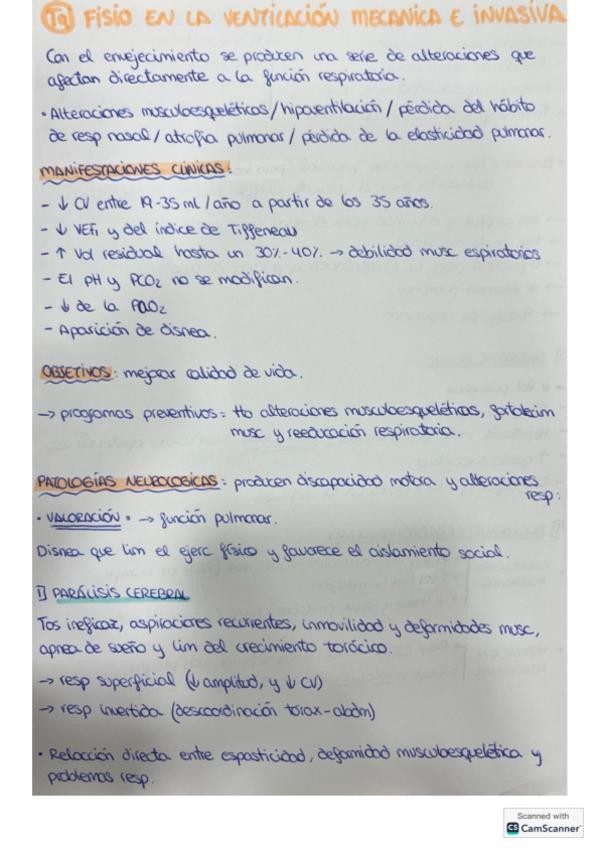 T9 FISIO EN LA VENTILACIÓN MECANICA E INVASIVA
Con el envejecimiento se producen una serie de alteraciones que
afectan directamente a la función respiratoria.
• Alteraciones musculoesqueléticas / hipoventilación / pérdida del hábito
de resp nasal / atrofia pulmonar / pérdida de la elasticidad pulmonar.
MANIFESTACIONES CLINICAS:
- ↓ CV entre 19-35 mL/año a partir de los 35 años.
- ↓ VEF1 y del índice de Tiffeneau
- ↑ Vol residual hasta un 30%-40% → debilidad musc espiratorios
- El pH y PCO2 no se modifican.
- ↓ de la PaO2
- Aparición de disnea.
OBJETIVOS: mejorar calidad de vida.
→ programas preventivos = tto alteraciones musculoesqueléticas, fortalecim
musc y reeducación respiratoria.
PATOLOGÍAS NEUROLOGICAS: producen discapacidad motora y alteraciones
resp:
• VALORACIÓN • → función pulmonar.
Disnea que lim el ejerc físico y favorece el aislamiento social.
1) PARÁLISIS CEREBRAL
Tos ineficaz, aspiraciones recurrentes, inmovilidad y deformidades musc,
apnea de sueño y lim del crecimiento torácico.
→ resp superficial (↓ amplitud, y ↓ CV)
→ resp invertida (descoordinación torax-abdm)
• Relacción directa entre espasticidad, deformidad musculoesquelética y
problemas resp.
Scanned with
CS CamScanner